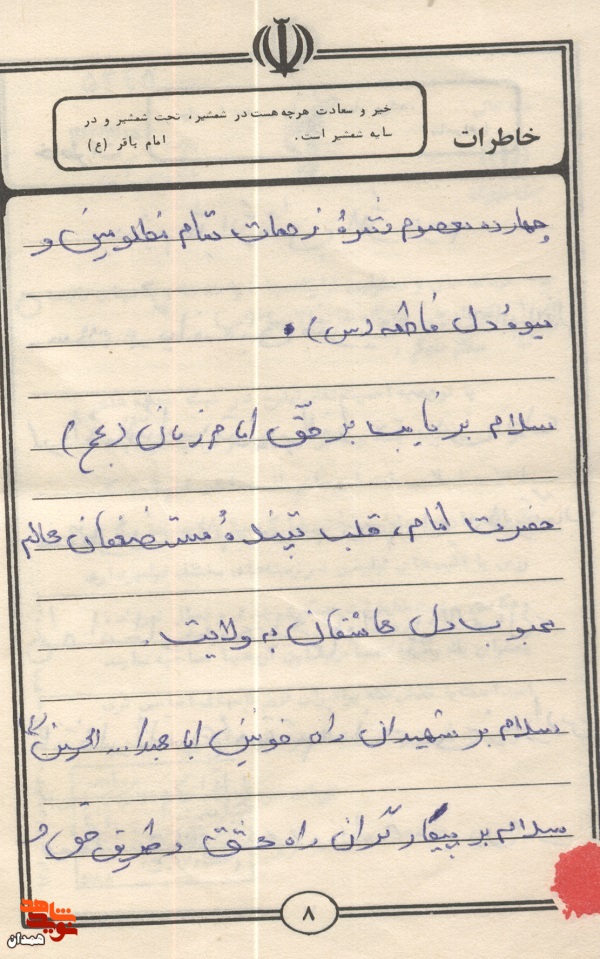 خیر و سعادت هرچه هست در شمشیر، تحت شمشیر و در
سایه شمشیر است. امام باقر (ع)
خاطرات
چهارده معصوم و ثمرهٔ زحمات تمام مظلومین و
میوهٔ دل فاطمه (س).
سلام بر نایب بر حقّ امام زمان (عج)
حضرت امام، قلب تپندهٔ مستضعفان عالم
محبوب دل عاشقان به ولایت.
سلام بر شهیدان راه خونین ابا عبدا... الحسین (ع)
سلام بر پیکارگران راه عشق و طریق حق و
۸
شاهد
همدان